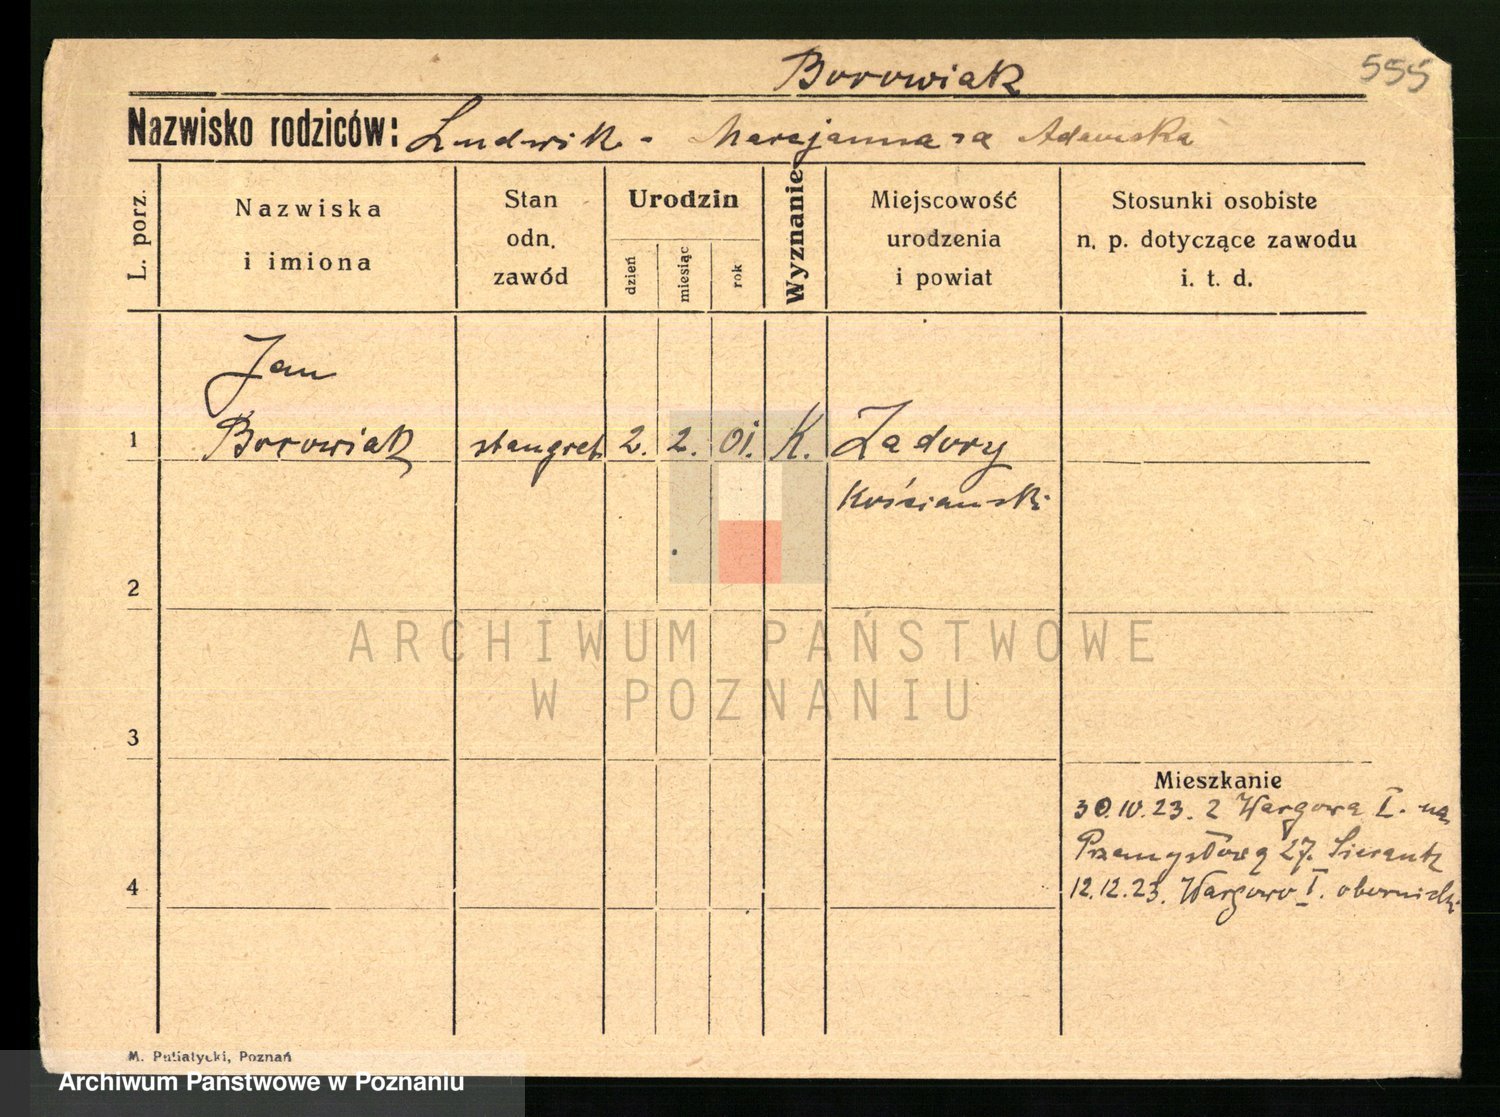 Borowiak
555
Nazwisko rodziców: Ludwik - Marejanna za Adamska
L. porz.
Nazwiska
i imiona
Stan
odn.
zawód
Urodzin
dzień
miesiąc
rok
Wyznanie
Miejscowość
urodzenia
i powiat
Stosunki osobiste
n. p. dotyczące zawodu
i. t. d.
Jan
1 Borowiak stangret 2. 2. 01. K. Zadory
Kościański
2
ARCHIWUM PAŃSTWOWE
W POZNANIU
3
Mieszkanie
30.IV.23. z Wargowa I. na
Przemysłową 27.
4
12.12.23. Wargowo I. obornicki
M. Putiatycki, Poznań
Archiwum Państwowe w Poznaniu